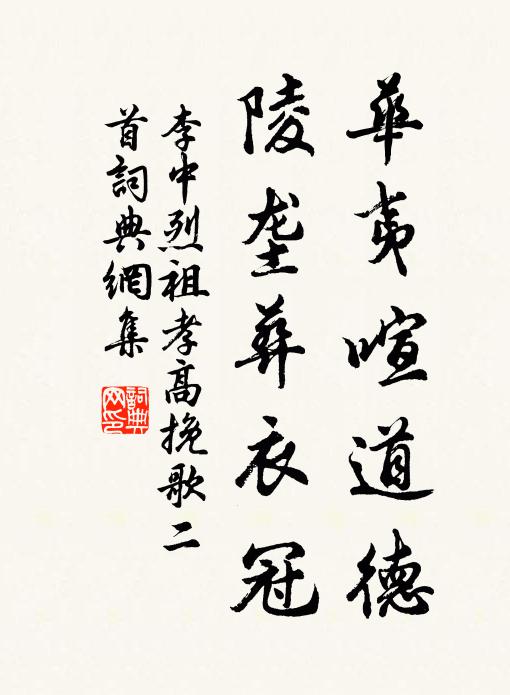 華夷喧道德
陵垄葬衣冠
李中烈祖孝高挽歌二
首詞典網集
詞典
网印